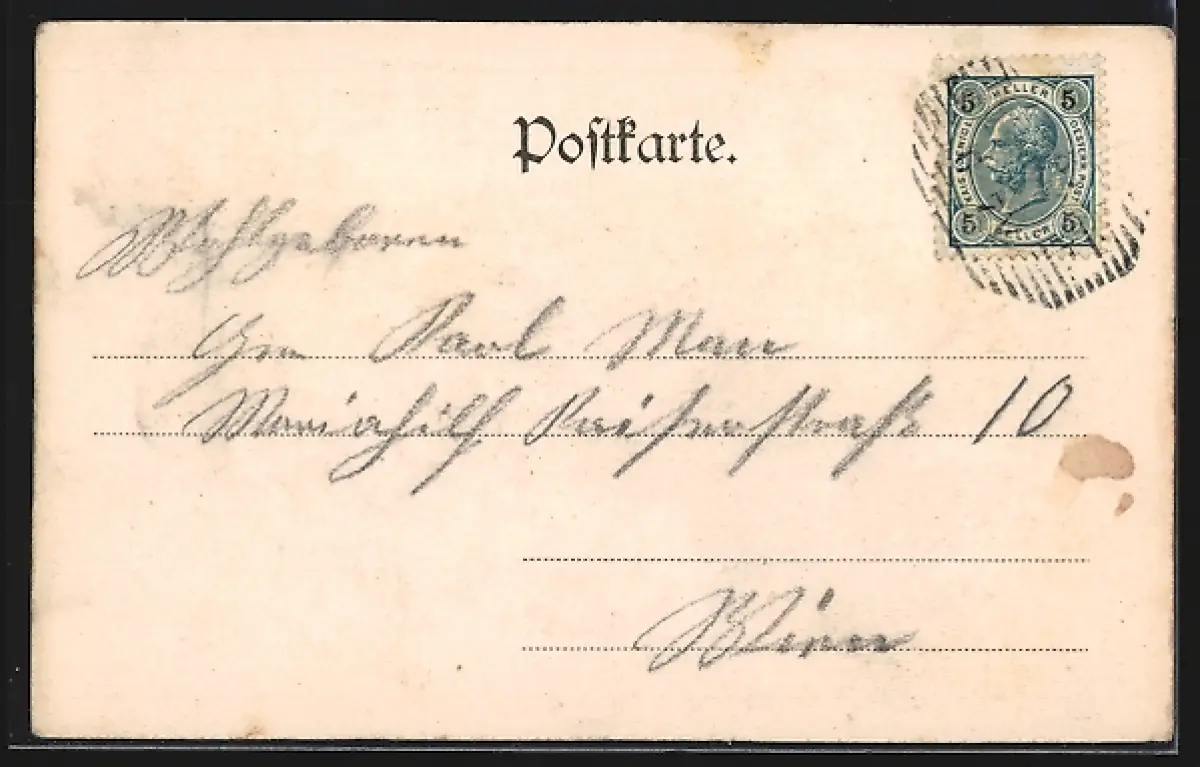 Postkarte.
5 HELLER 5
5 HELLER 5
Wohlgeboren
Paul
Mariahilf Kaiserstraße 10
Wien